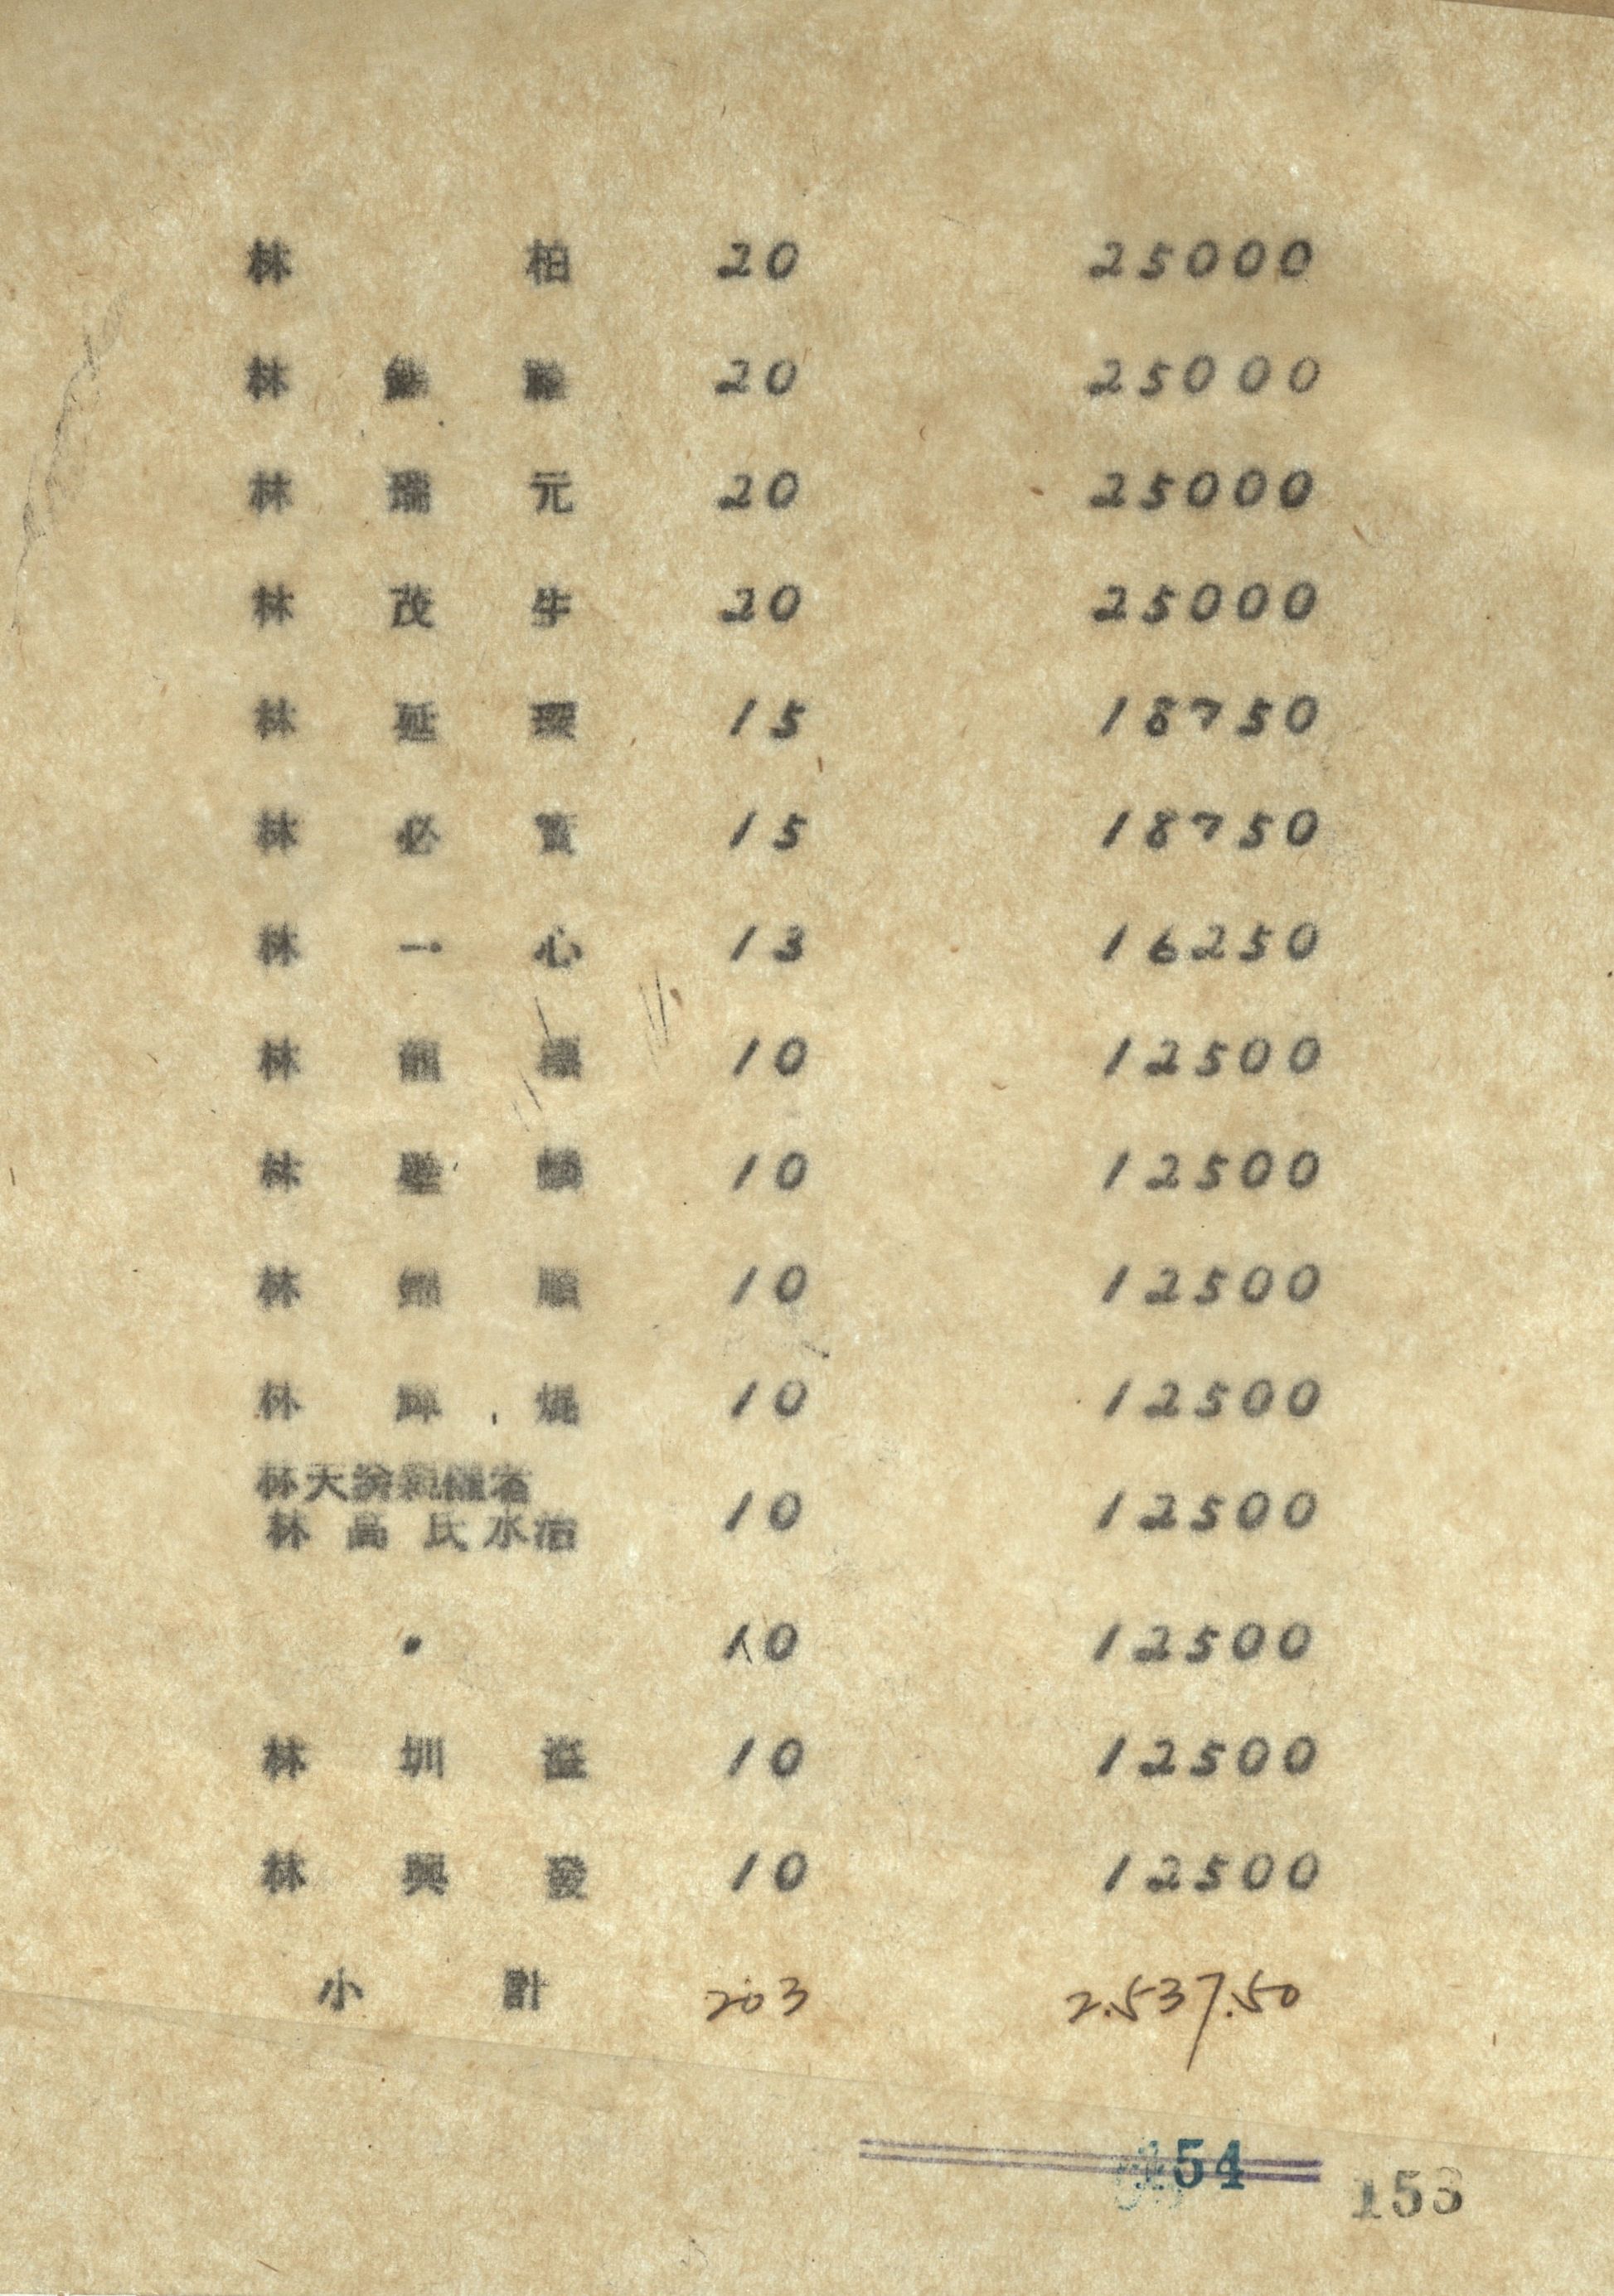 林 柏 20 25000
林 20 25000
林 瑞 元 20 25000
林 茂 牛 20 25000
林 延 15 18750
林 必 15 18750
林 一 心 13 16250
林 10 12500
林 10 12500
林 順 10 12500
林 輝 焜 10 12500
林天 親權者
林 高 氏 水 治 10 12500
〃 10 12500
林 圳 10 12500
林 興 發 10 12500
小 計 203 2.537.50
154
153